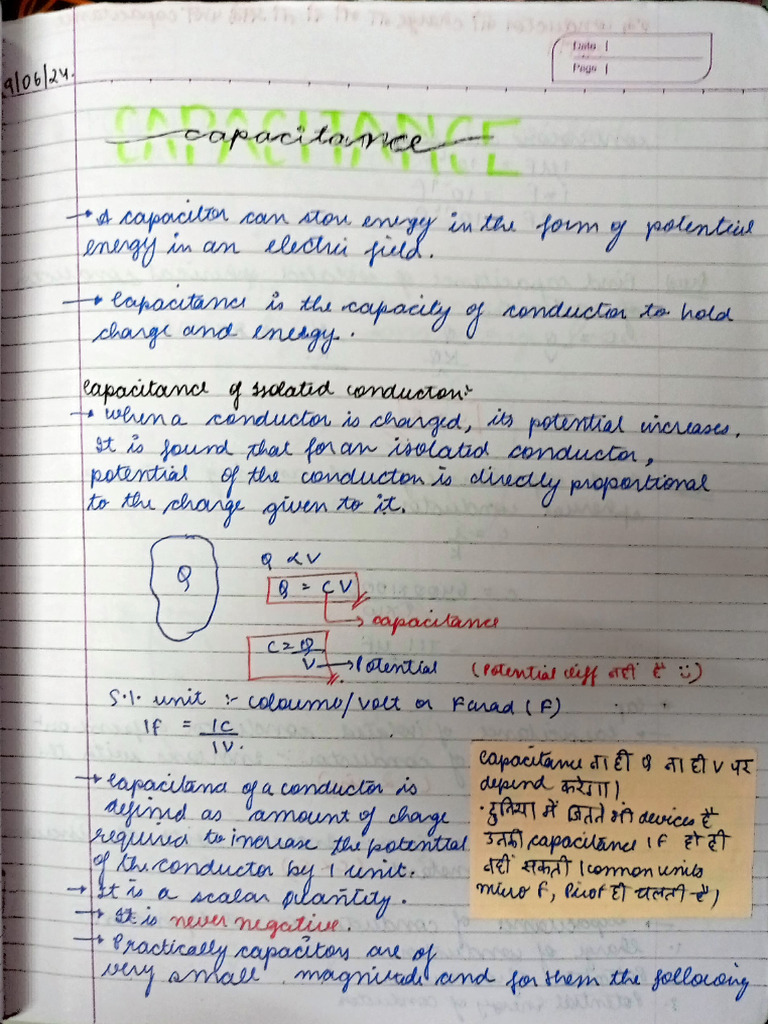 Date |
Page |
9/06/24.
CAPACITANCE
capacitance
→ A capacitor can store energy in the form of potential
energy in an electric field.
→ Capacitance is the capacity of conductor to hold
charge and energy.
Capacitance of isolated conductor:-
→ When a conductor is charged, its potential increases.
It is found that for an isolated conductor,
potential of the conductor is directly proportional
to the charge given to it.
Q
Q ∝ V
Q = CV
→ capacitance
C = Q/V → Potential (Potential diff नहीं है :))
S.I. unit :- Coloumb/volt or Farad (F)
1F = 1C/1V.
→ Capacitance of a conductor is
defined as amount of charge
required to increase the potential
of the conductor by 1 unit.
→ It is a scalar quantity.
→ It is never negative.
→ Practically capacitors are of
very small magnitude and for them the following
capacitance ना ही Q ना ही V पर
depend करेगा।
• दुनिया में जितने भी devices है
उनकी capacitance 1F हो ही
नहीं सकती (common units
micro F, Pico F ही चलती है)